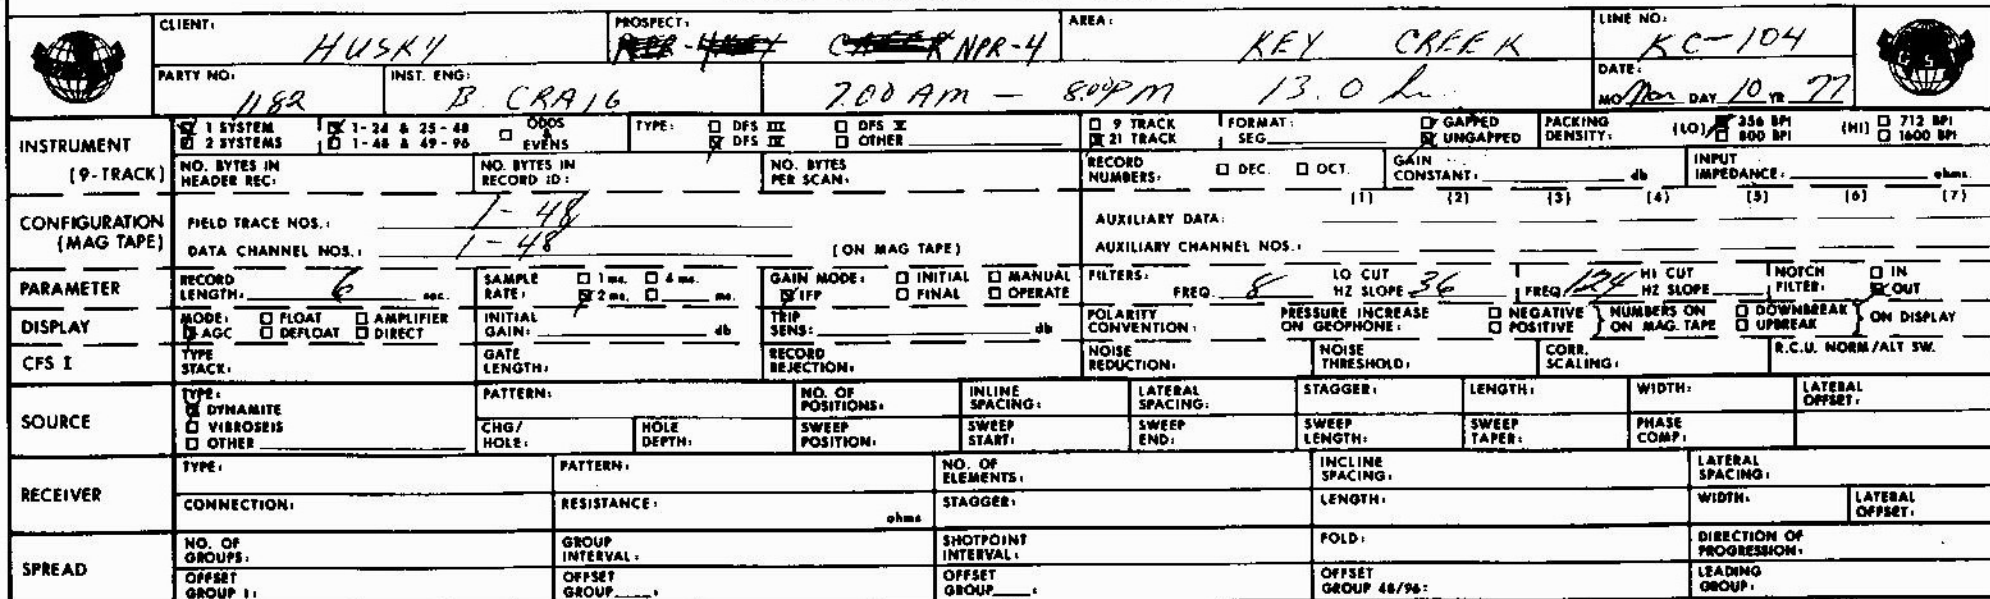 CLIENT: HUSKY PROSPECT: NPR-4 AREA: KEY CREEK LINE NO: KC-104
PARTY NO: 1182 INST. ENG: B. CRAIG 7:00 AM - 8:00 PM 13.0 DATE: MO Mar DAY 10 YR 77
GSI
INSTRUMENT 1 SYSTEM 1-24 & 25-48 ODDS & EVENS TYPE: DFS III DFS V 9 TRACK FORMAT: GAPPED PACKING DENSITY: (LO) 356 BPI (HI) 712 BPI
2 SYSTEMS 1-48 & 49-96 DFS IV OTHER 21 TRACK SEG UNGAPPED 800 BPI 1600 BPI
(9-TRACK) NO. BYTES IN HEADER REC: NO. BYTES IN RECORD ID: NO. BYTES PER SCAN: RECORD NUMBERS: DEC. OCT. GAIN CONSTANT: db INPUT IMPEDANCE: ohms.
(1) (2) (3) (4) (5) (6) (7)
CONFIGURATION FIELD TRACE NOS.: 1-48 AUXILIARY DATA:
(MAG TAPE) DATA CHANNEL NOS.: 1-48 (ON MAG TAPE) AUXILIARY CHANNEL NOS.:
PARAMETER RECORD LENGTH: 6 sec. SAMPLE RATE: 1 ms. 4 ms. 2 ms. ms. GAIN MODE: INITIAL MANUAL IFP FINAL OPERATE FILTERS: FREQ. 8 LO CUT HZ SLOPE 36 FREQ 124 HI CUT HZ SLOPE NOTCH FILTER: IN OUT
DISPLAY MODE: FLOAT AMPLIFIER AGC DEFLOAT DIRECT INITIAL GAIN: db TRIP SENS: db POLARITY CONVENTION: PRESSURE INCREASE ON GEOPHONE: NEGATIVE POSITIVE NUMBERS ON ON MAG. TAPE DOWNBREAK UPBREAK ON DISPLAY
CFS I TYPE STACK: GATE LENGTH: RECORD REJECTION: NOISE REDUCTION: NOISE THRESHOLD: CORR. SCALING: R.C.U. NORM/ALT SW.
SOURCE TYPE: DYNAMITE VIBROSEIS OTHER PATTERN: NO. OF POSITIONS: INLINE SPACING: LATERAL SPACING: STAGGER: LENGTH: WIDTH: LATERAL OFFSET:
CHG/ HOLE: HOLE DEPTH: SWEEP POSITION: SWEEP START: SWEEP END: SWEEP LENGTH: SWEEP TAPER: PHASE COMP:
RECEIVER TYPE: PATTERN: NO. OF ELEMENTS: INCLINE SPACING: LATERAL SPACING:
CONNECTION: RESISTANCE: ohms STAGGER: LENGTH: WIDTH: LATERAL OFFSET:
SPREAD NO. OF GROUPS: GROUP INTERVAL: SHOTPOINT INTERVAL: FOLD: DIRECTION OF PROGRESSION:
OFFSET GROUP 1: OFFSET GROUP : OFFSET GROUP : OFFSET GROUP 48/96: LEADING GROUP: